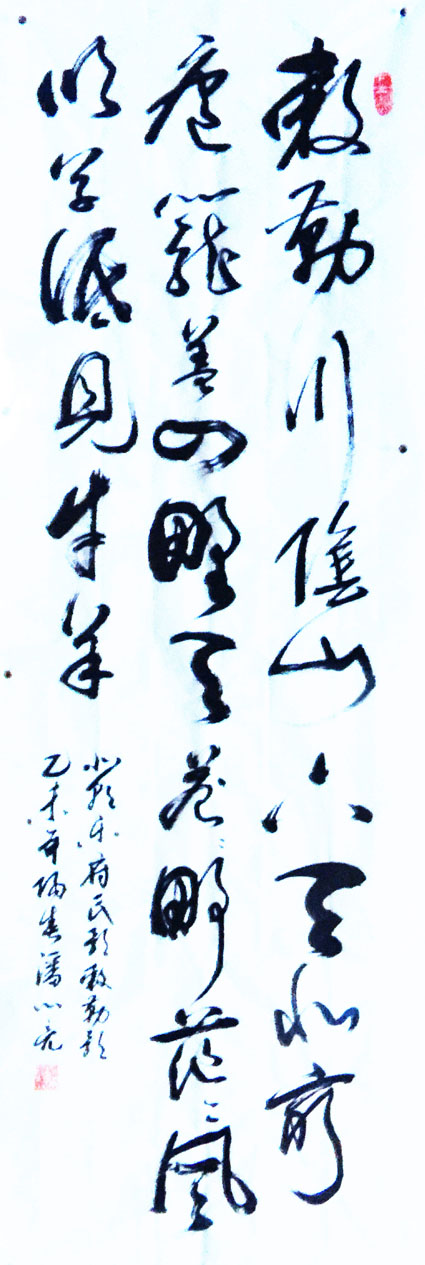 敕勒川陰山下天似穹
廬籠蓋四野天蒼々野茫々風
吹草低見牛羊
北朝乐府民歌敕勒歌
乙未年陽春潘